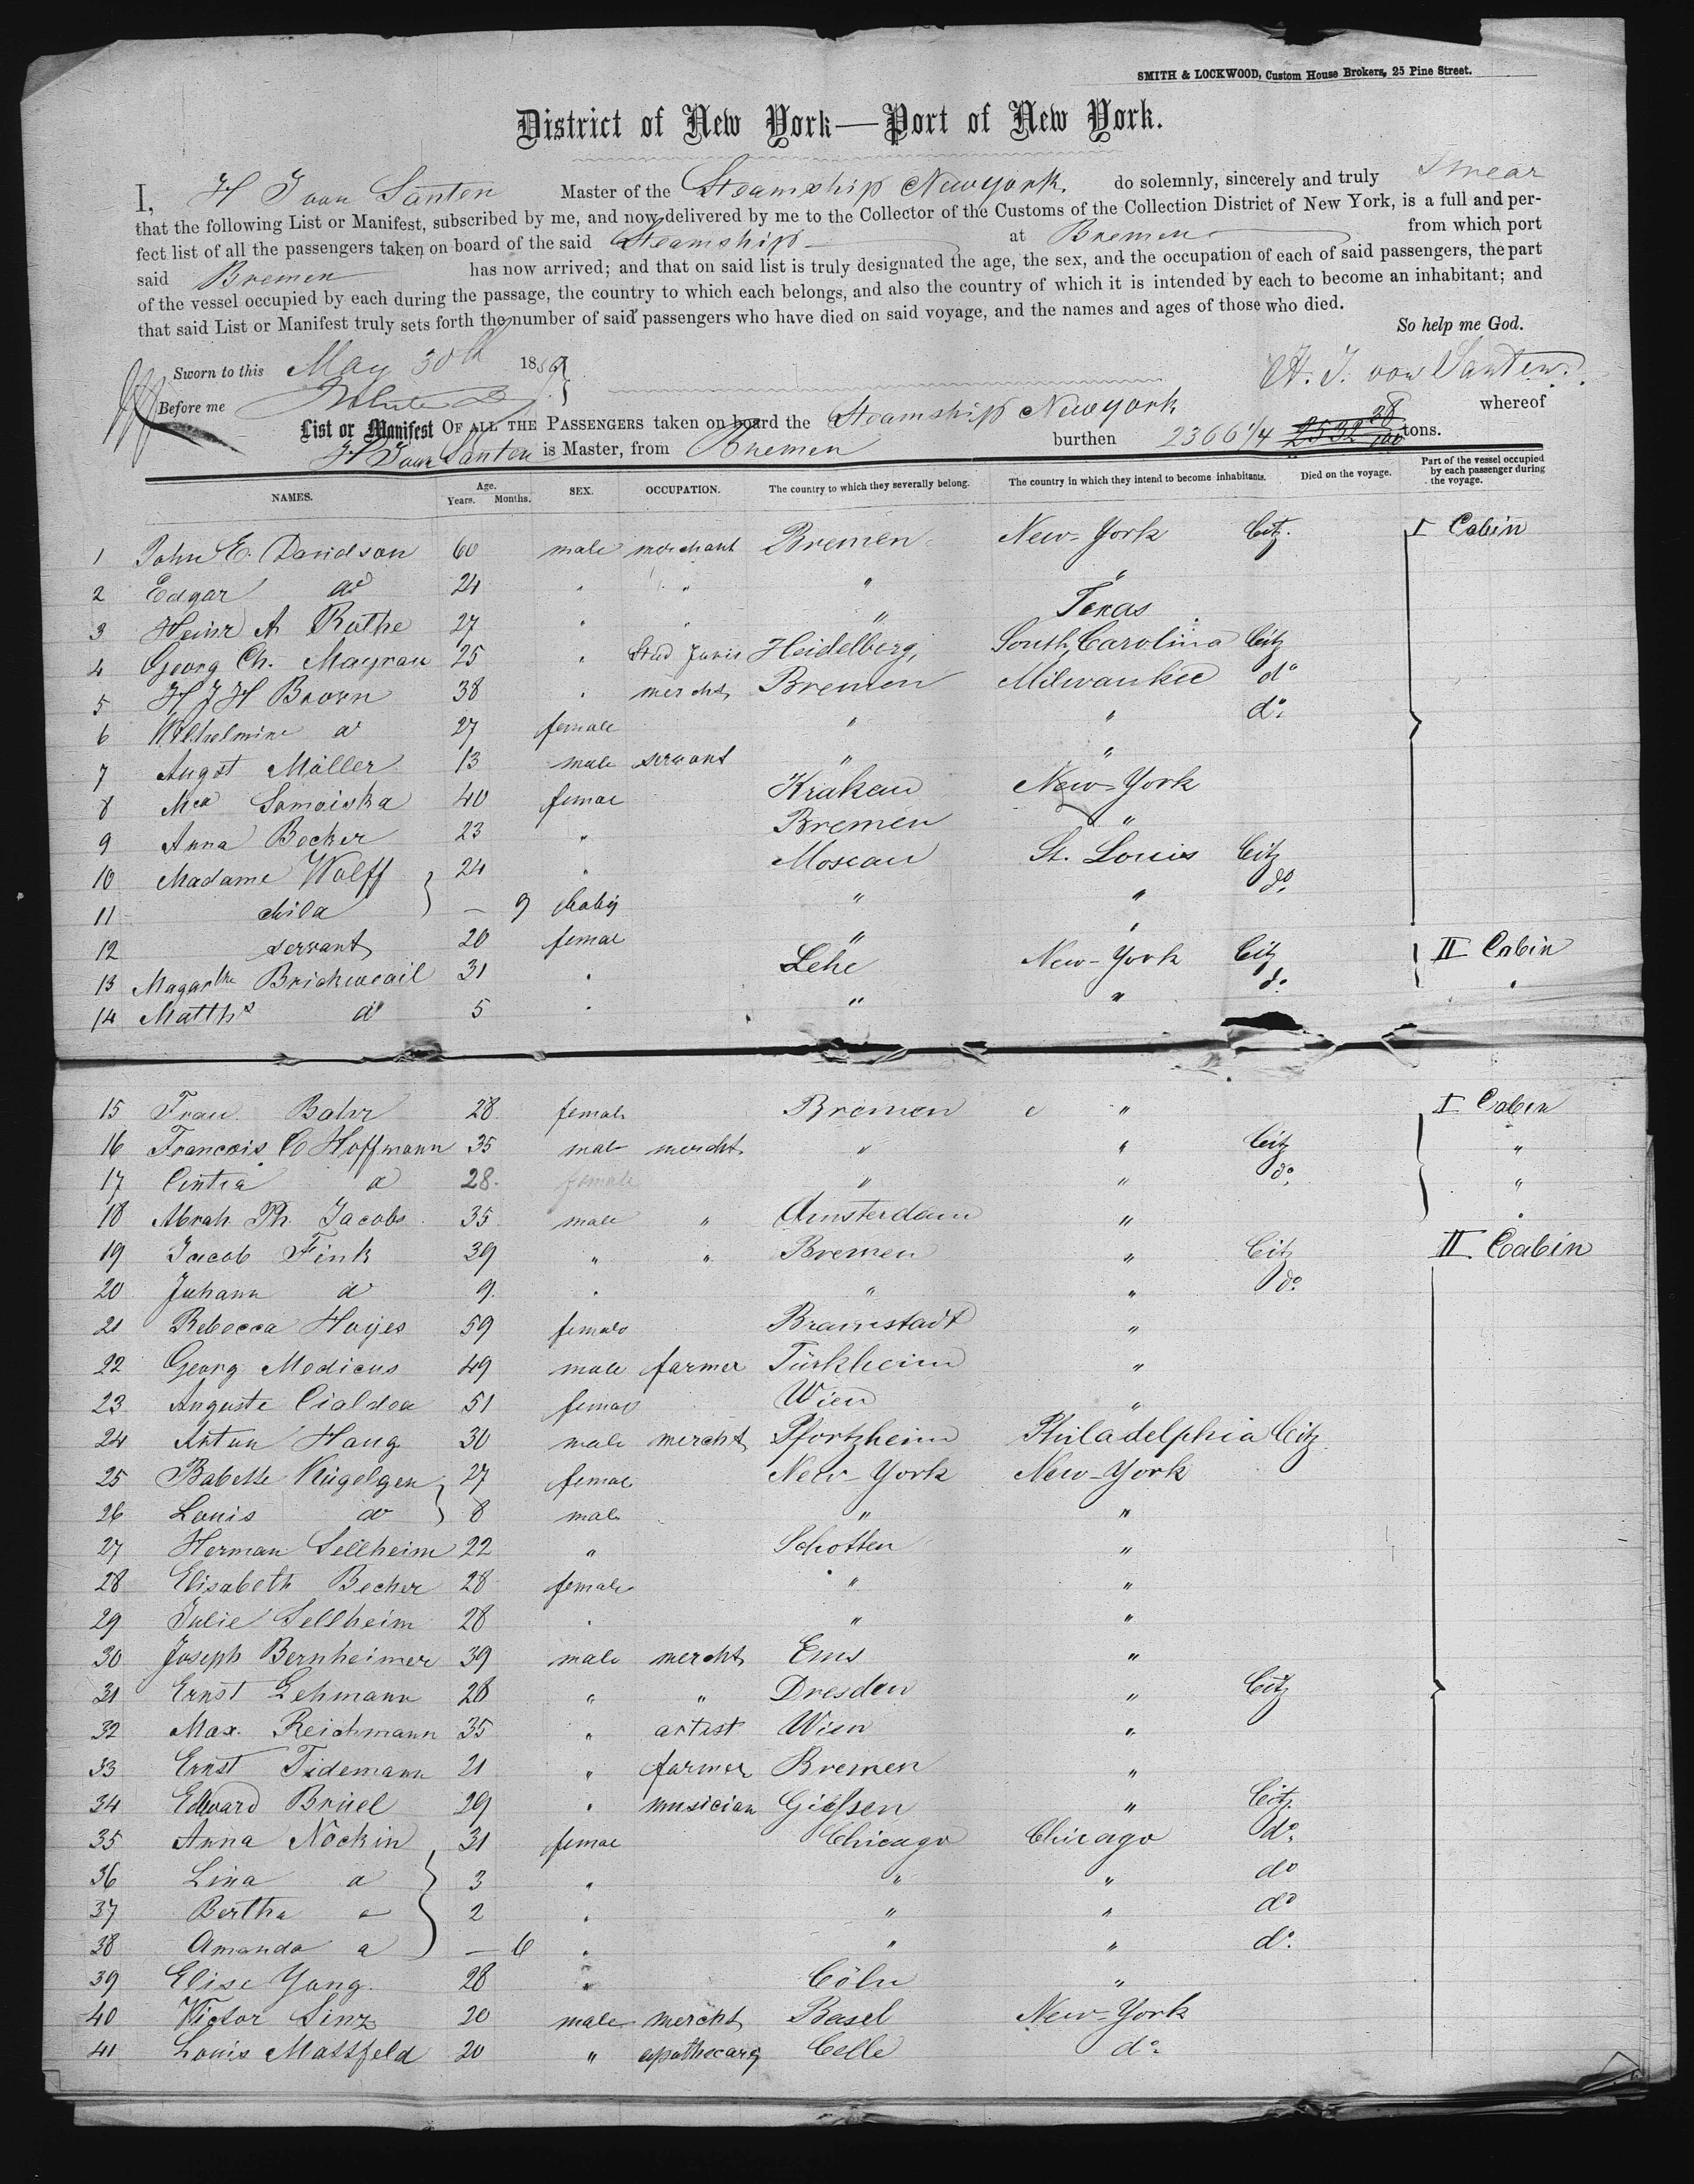 SMITH & LOCKWOOD, Custom House Brokers, 25 Pine Street.
District of New York—Port of New York.
I, H J von Santen Master of the Steamship Newyork. do solemnly, sincerely and truly swear
that the following List or Manifest, subscribed by me, and now delivered by me to the Collector of the Customs of the Collection District of New York, is a full and per-
fect list of all the passengers taken on board of the said Steamship at Bremen from which port
said Bremen has now arrived; and that on said list is truly designated the age, the sex, and the occupation of each of said passengers, the part
of the vessel occupied by each during the passage, the country to which each belongs, and also the country of which it is intended by each to become an inhabitant; and
that said List or Manifest truly sets forth the number of said passengers who have died on said voyage, and the names and ages of those who died.
So help me God.
Sworn to this May 30th 18 H. J. von Santen.
Before me
List or Manifest OF ALL THE PASSENGERS taken on board the Steamship Newyork whereof
H J von Santen is Master, from Bremen burthen 2366 1/4 tons.
NAMES. Age. Years. Months. SEX. OCCUPATION. The country to which they severally belong. The country in which they intend to become inhabitants. Died on the voyage. Part of the vessel occupied by each passenger during the voyage.
1 John E. Davidson 60 male merchant Bremen New-York Citz. I Cabin
2 Edgar do 24 " " " "
3 Heinr A Ruthe 27 " " " Texas
4 Georg Ch. Mayrau 25 " Stud Juris Heidelberg, South Carolina Citz
5 H J H Brown 38 " mercht Bremen Milwaukee do
6 Wilhelmine do 27 female " " do.
7 Augst Müller 13 male servant " "
8 Mea Samoiska 40 femae Krakau New-York
9 Anna Becker 23 " Bremen "
10 Madame Wolff 24 " Moscau St. Louis Citz
11 child — 9 baby " " do.
12 servant 20 femae " "
13 Magarthe Brickweail 31 " Lehe New-York Citz II Cabin
14 Matths d 5 " " " do. "
15 Frau Bahr 28 female Bremen " I Cabin
16 Francois C Hoffmann 35 male mercht " " Citz "
17 Cintia d 28. female " " do. "
18 Abrah Ph. Jacobs 35 male " Amsterdam " "
19 Jacob Fink 39 " " Bremen " Citz II Cabin
20 Johann d 9. " " " do.
21 Rebecca Hoyes 59 female Bramstadt "
22 Georg Medicus 49 male farmer Türkheim "
23 Auguste Cialdea 51 femae Wien "
24 Anton Haug 30 male mercht Pfortzheim Philadelphia Citz
25 Babette Kügelgen 27 femae New-York New-York
26 Louis do 8 male " "
27 Herman Sellheim 22 " Schotten "
28 Elisabeth Becher 28 female " "
29 Julie Sellheim 28 " " "
30 Joseph Bernheimer 39 male mercht Ems "
31 Ernst Lehmann 28 " " Dresden " Citz
32 Max. Reichmann 35 " artist Wien "
33 Ernst Tidemann 21 " farmer Bremen "
34 Edward Brüel 29 " musician Gießen " Citz.
35 Anna Nöckin 31 femae Chicago Chicago do.
36 Lina d 3 " " " do
37 Bertha d 2 " " " do
38 Amanda d — 6 " " " do.
39 Elise Yang. 28 " Cöln "
40 Victor Sinz 20 male mercht Basel New-York
41 Louis Mattfeld 20 " apothecary Celle do.